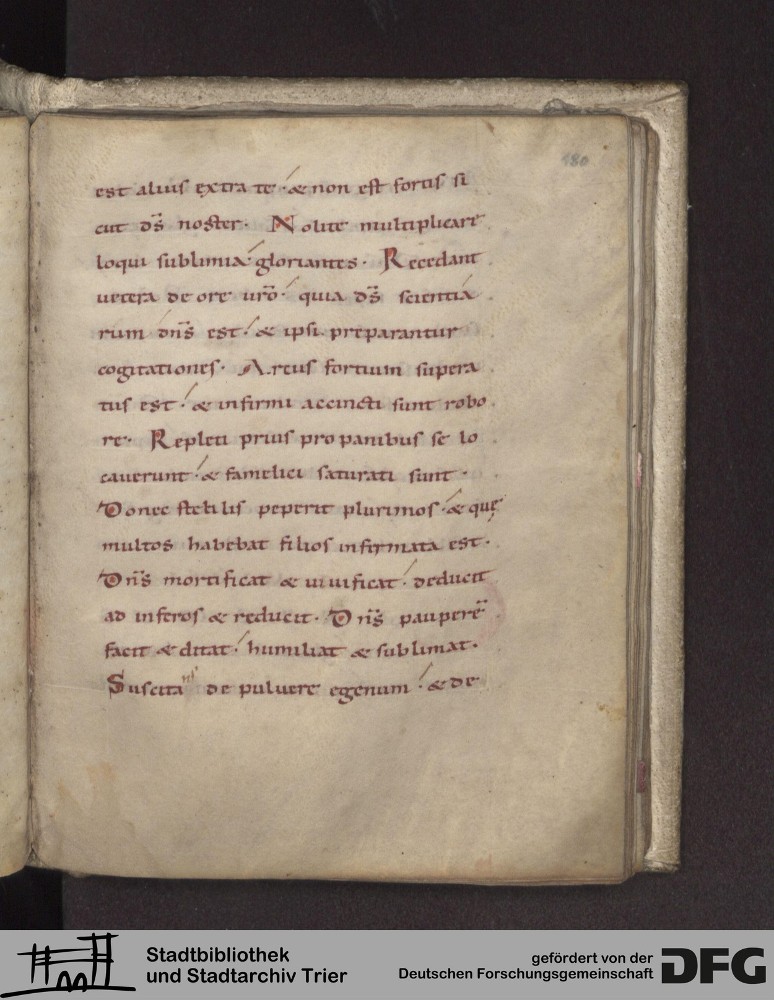 180
est alius extra te· & non est fortis si
cut ds̄ noster· Nolite multiplicare
loqui sublimia· gloriantes· Recedant
uetera de ore ur̄o· quia ds̄ scientia
rum dn̄s est· & ipsi preparantur
cogitationes· Arcus fortium supera
tus est· & infirmi accincti sunt robo
re· Repleti prius pro panibus se lo
cauerunt· & famelici saturati sunt·
Donec sterilis peperit plurimos· & quę
multos habebat filios infirmata est·
Dn̄s mortificat & uiuificat· deducit
ad inferos & reducit· Dn̄s pauperē
facit & ditat· humiliat & sublimat·
Suscita de puluere egenum· & de
Stadtbibliothek
und Stadtarchiv Trier
gefördert von der
Deutschen Forschungsgemeinschaft
DFG